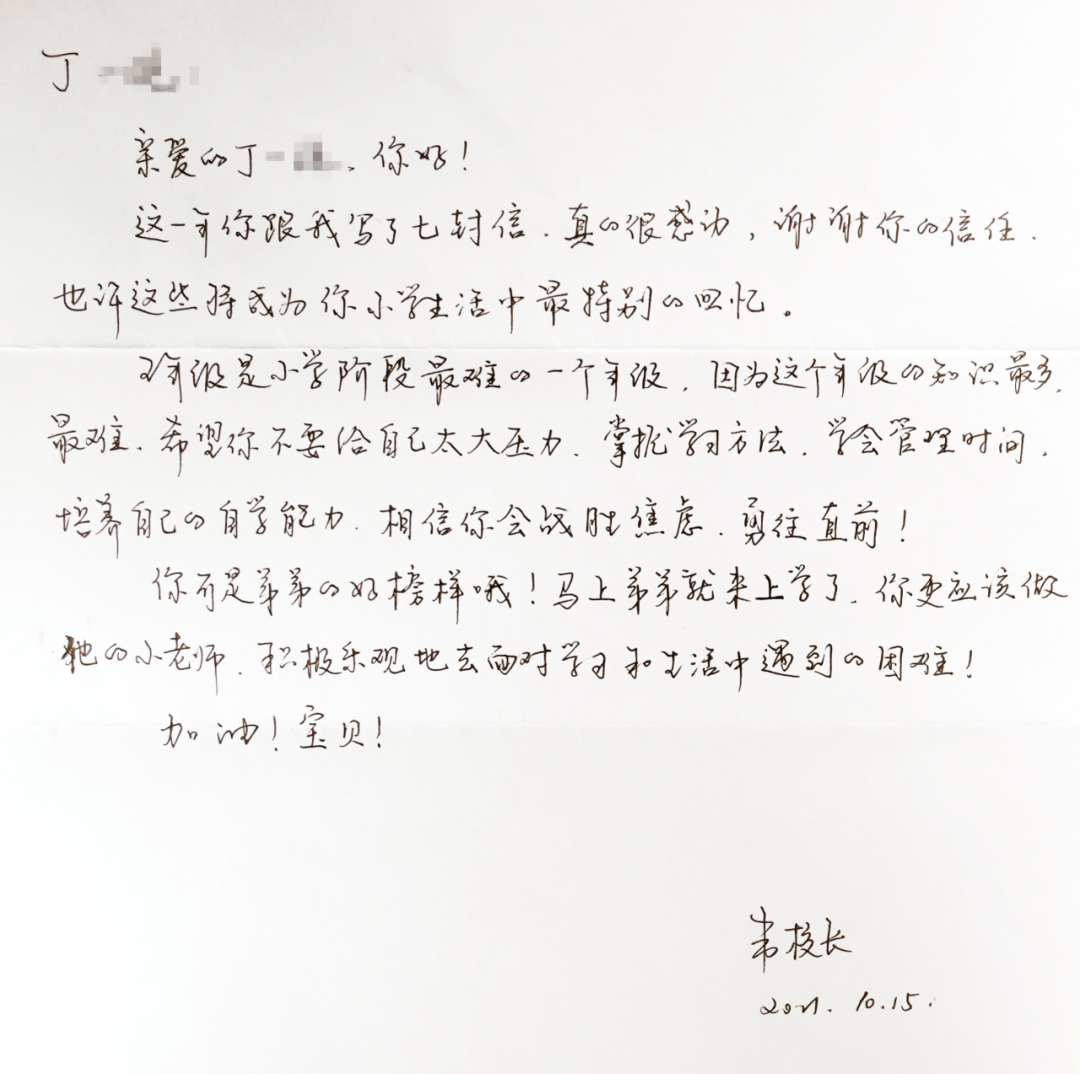 丁一
亲爱的丁一、你好！
这一年你跟我写了七封信，真的很感动，谢谢你的信任，
也许这些将成为你小学生活中最特别的回忆。
五年级是小学阶段最难的一个年级，因为这个年级的知识最多，
最难、希望你不要给自己太大压力，掌握学习方法，学会管理时间，
培养自己的自学能力，相信你会战胜焦虑，勇往直前！
你可是弟弟的好榜样哦！马上弟弟就来上学了，你更应该做
他的小老师，积极乐观地去面对学习和生活中遇到的困难！
加油！宝贝！
校长
2021.10.15.